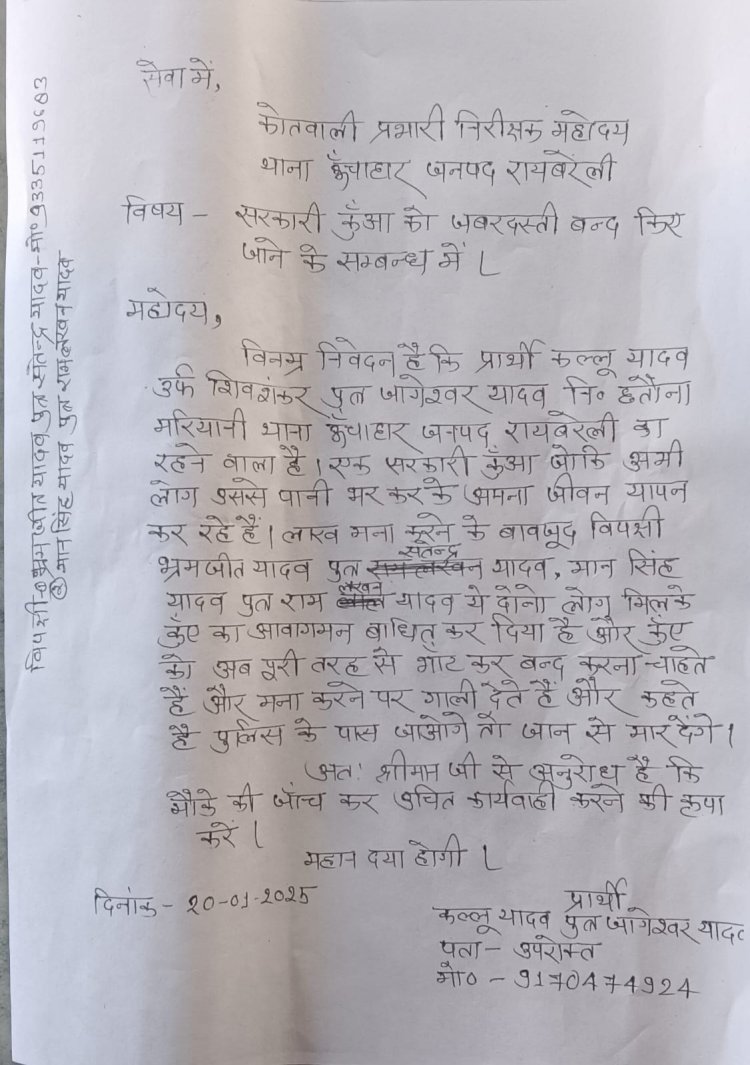 सेवा में,
कोतवाली प्रभारी निरीक्षक महोदय
थाना ऊँचाहार जनपद रायबरेली
विषय - सरकारी कुँआ को जबरदस्ती बन्द किए
जाने के सम्बन्ध में।
महोदय,
विनम्र निवेदन है कि प्रार्थी कल्लू यादव
उर्फ शिवशंकर पुत्र जागेश्वर यादव नि० छतौना
मरियानी थाना ऊँचाहार जनपद रायबरेली का
रहने वाला है। एक सरकारी कुँआ जोकि अभी
लोग उससे पानी भर कर के अपना जीवन यापन
कर रहे हैं। लाख मना करने के बावजूद विपक्षी
भ्रमजीत यादव पुत्र सतेन्द्र यादव, मान सिंह
यादव पुत्र राम लखन यादव ये दोनो लोग मिल के
कुँए का आवागमन बाधित कर दिया है और कुँए
को अब पूरी तरह से भाँट कर बन्द करना चाहते
हैं और मना करने पर गाली देते हैं और कहते
है पुलिस के पास जाओगे तो जान से मार देंगे।
अतः श्रीमान जी से अनुरोध है कि
मौके की जाँच कर उचित कार्यवाही करने की कृपा
करें।
महान दया होगी।
दिनांक - 20-01-2025
प्रार्थी
कल्लू यादव पुत्र जागेश्वर यादव
पता - उपरोक्त
मो० - 9170474924
विपक्षी-① भ्रमजीत यादव पुत्र सतेन्द्र यादव-मो० 9335119683
② मान सिंह यादव पुत्र रामलखन यादव